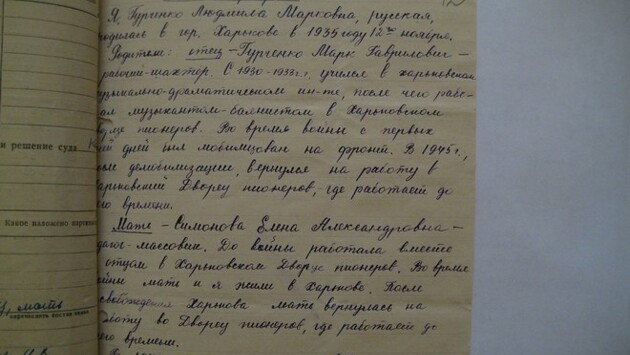 Я, Гурченко Людмила Марковна, русская,
родилась в гор. Харькове в 1935 году 12го ноября.
Родители: отец – Гурченко Марк Гаврилович –
рабочий-шахтер. С 1930-1933 г.г. учился в харьковском
музыкально-драматическом ин-те, после чего рабо-
ал музыкантом-баянистом в Харьковском
оме пионеров. Во время войны с первых
дней был мобилизован на фронт. В 1945 г.,
демобилизации, вернулся на работу в
арьковский Дворец пионеров, где работает до
го времени.
Мать – Симонова Елена Александровна –
дагог-массовик. До войны работала вместе
отцом в Харьковском Дворце пионеров. Во время
ойны мать и я жили в Харькове. После
свобождения Харькова мать вернулась на
боту во Дворец пионеров, где работает до
го времени.
и решение суда
Какое изложена
мать